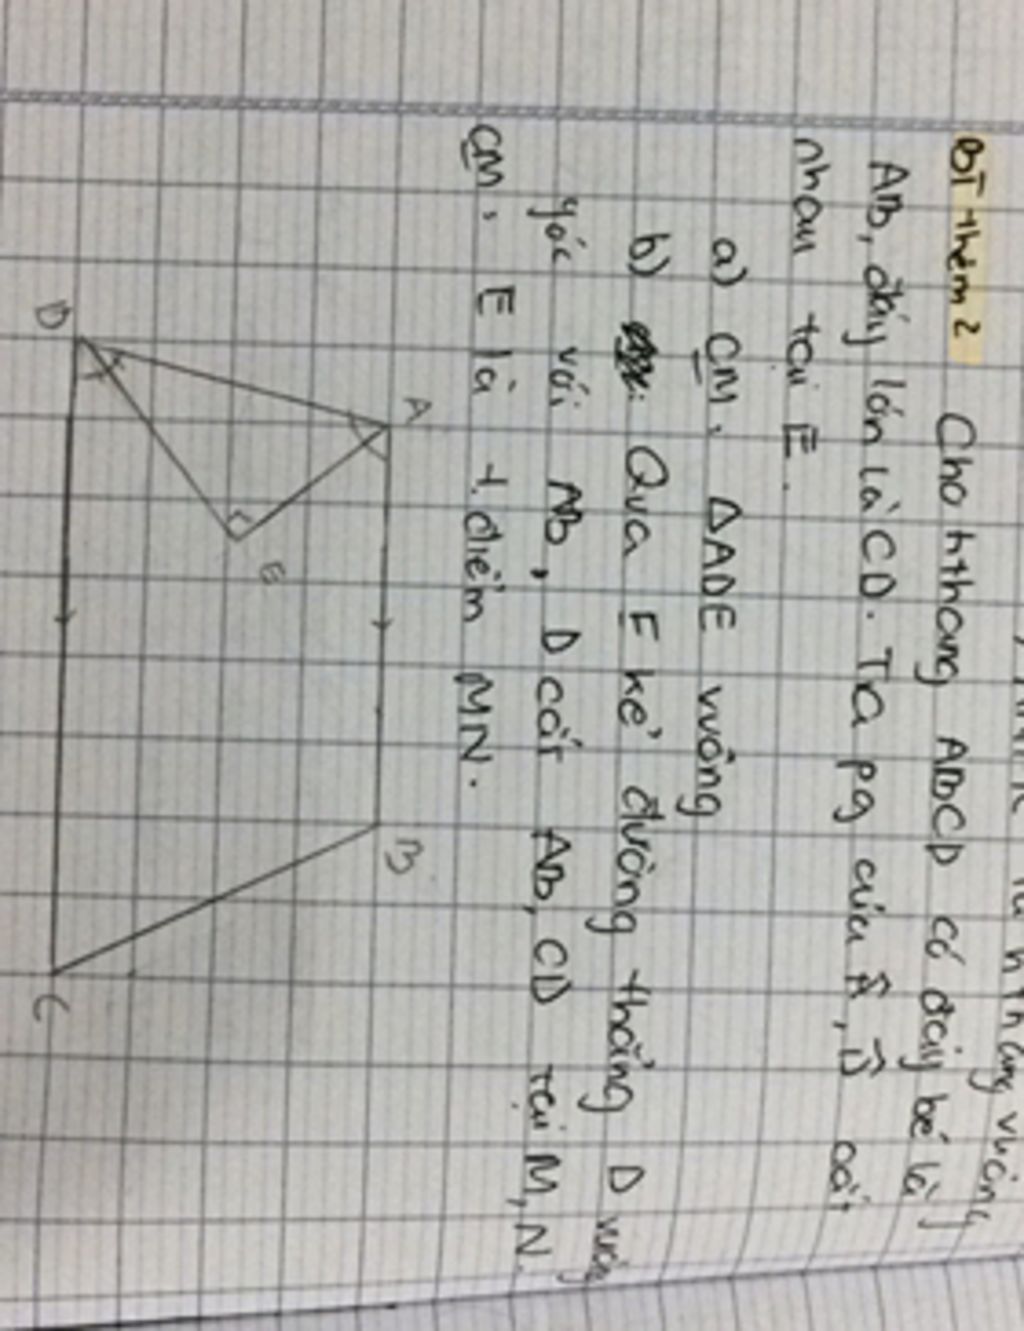 BT thêm 2 Cho hthang ABCD có đáy bé là
AB, đáy lớn là CD. Tia pg của Â, D̂ cắt
nhau tại E.
a) CM, ΔADE vuông
b) Qua E kẻ đường thẳng D vuông
góc với AB, D cắt AB, CD tại M, N.
CM, E là t.điểm MN.
A
B
C
D
E